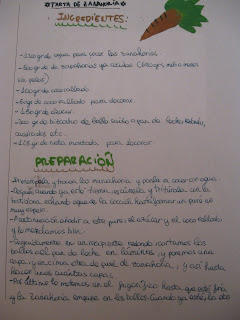 *TARTA DE ZANAHORIA*
INGREDIENTES:
gr de agua para cocer las zanahorias.
gr de zanahorias ya cocidas (
sin pelar)
gr coco rallado
gr de coco rallado para decorar
gr de azúcar.
gr de bizcocho de bollo suizo o pan de leche, redondo,
cuadrados etc..
gr de nata montada para decorar
PREPARACIÓN
y trocear las zanahoria y ponerla a cocer en agua.
-Después cuando ya este tierna, y triturarla con la
batidora, echando agua de la cocción hasta formar un puré no
muy espeso.
-A continuación añadir a este pure: el azúcar y el coco rallado
y lo mezclamos bien.
-Seguidamente en un recipiente redondo cortamos los
bollos o el pan de leche en láminas, y ponemos una
capa y encima otra de puré de zanahoria, y así hasta
hacer unas cuantas capas.
-Por último lo metemos en el frigorífico hasta que esté fría
y la zanahoria empape en los bollos. Cuando ya esté, la